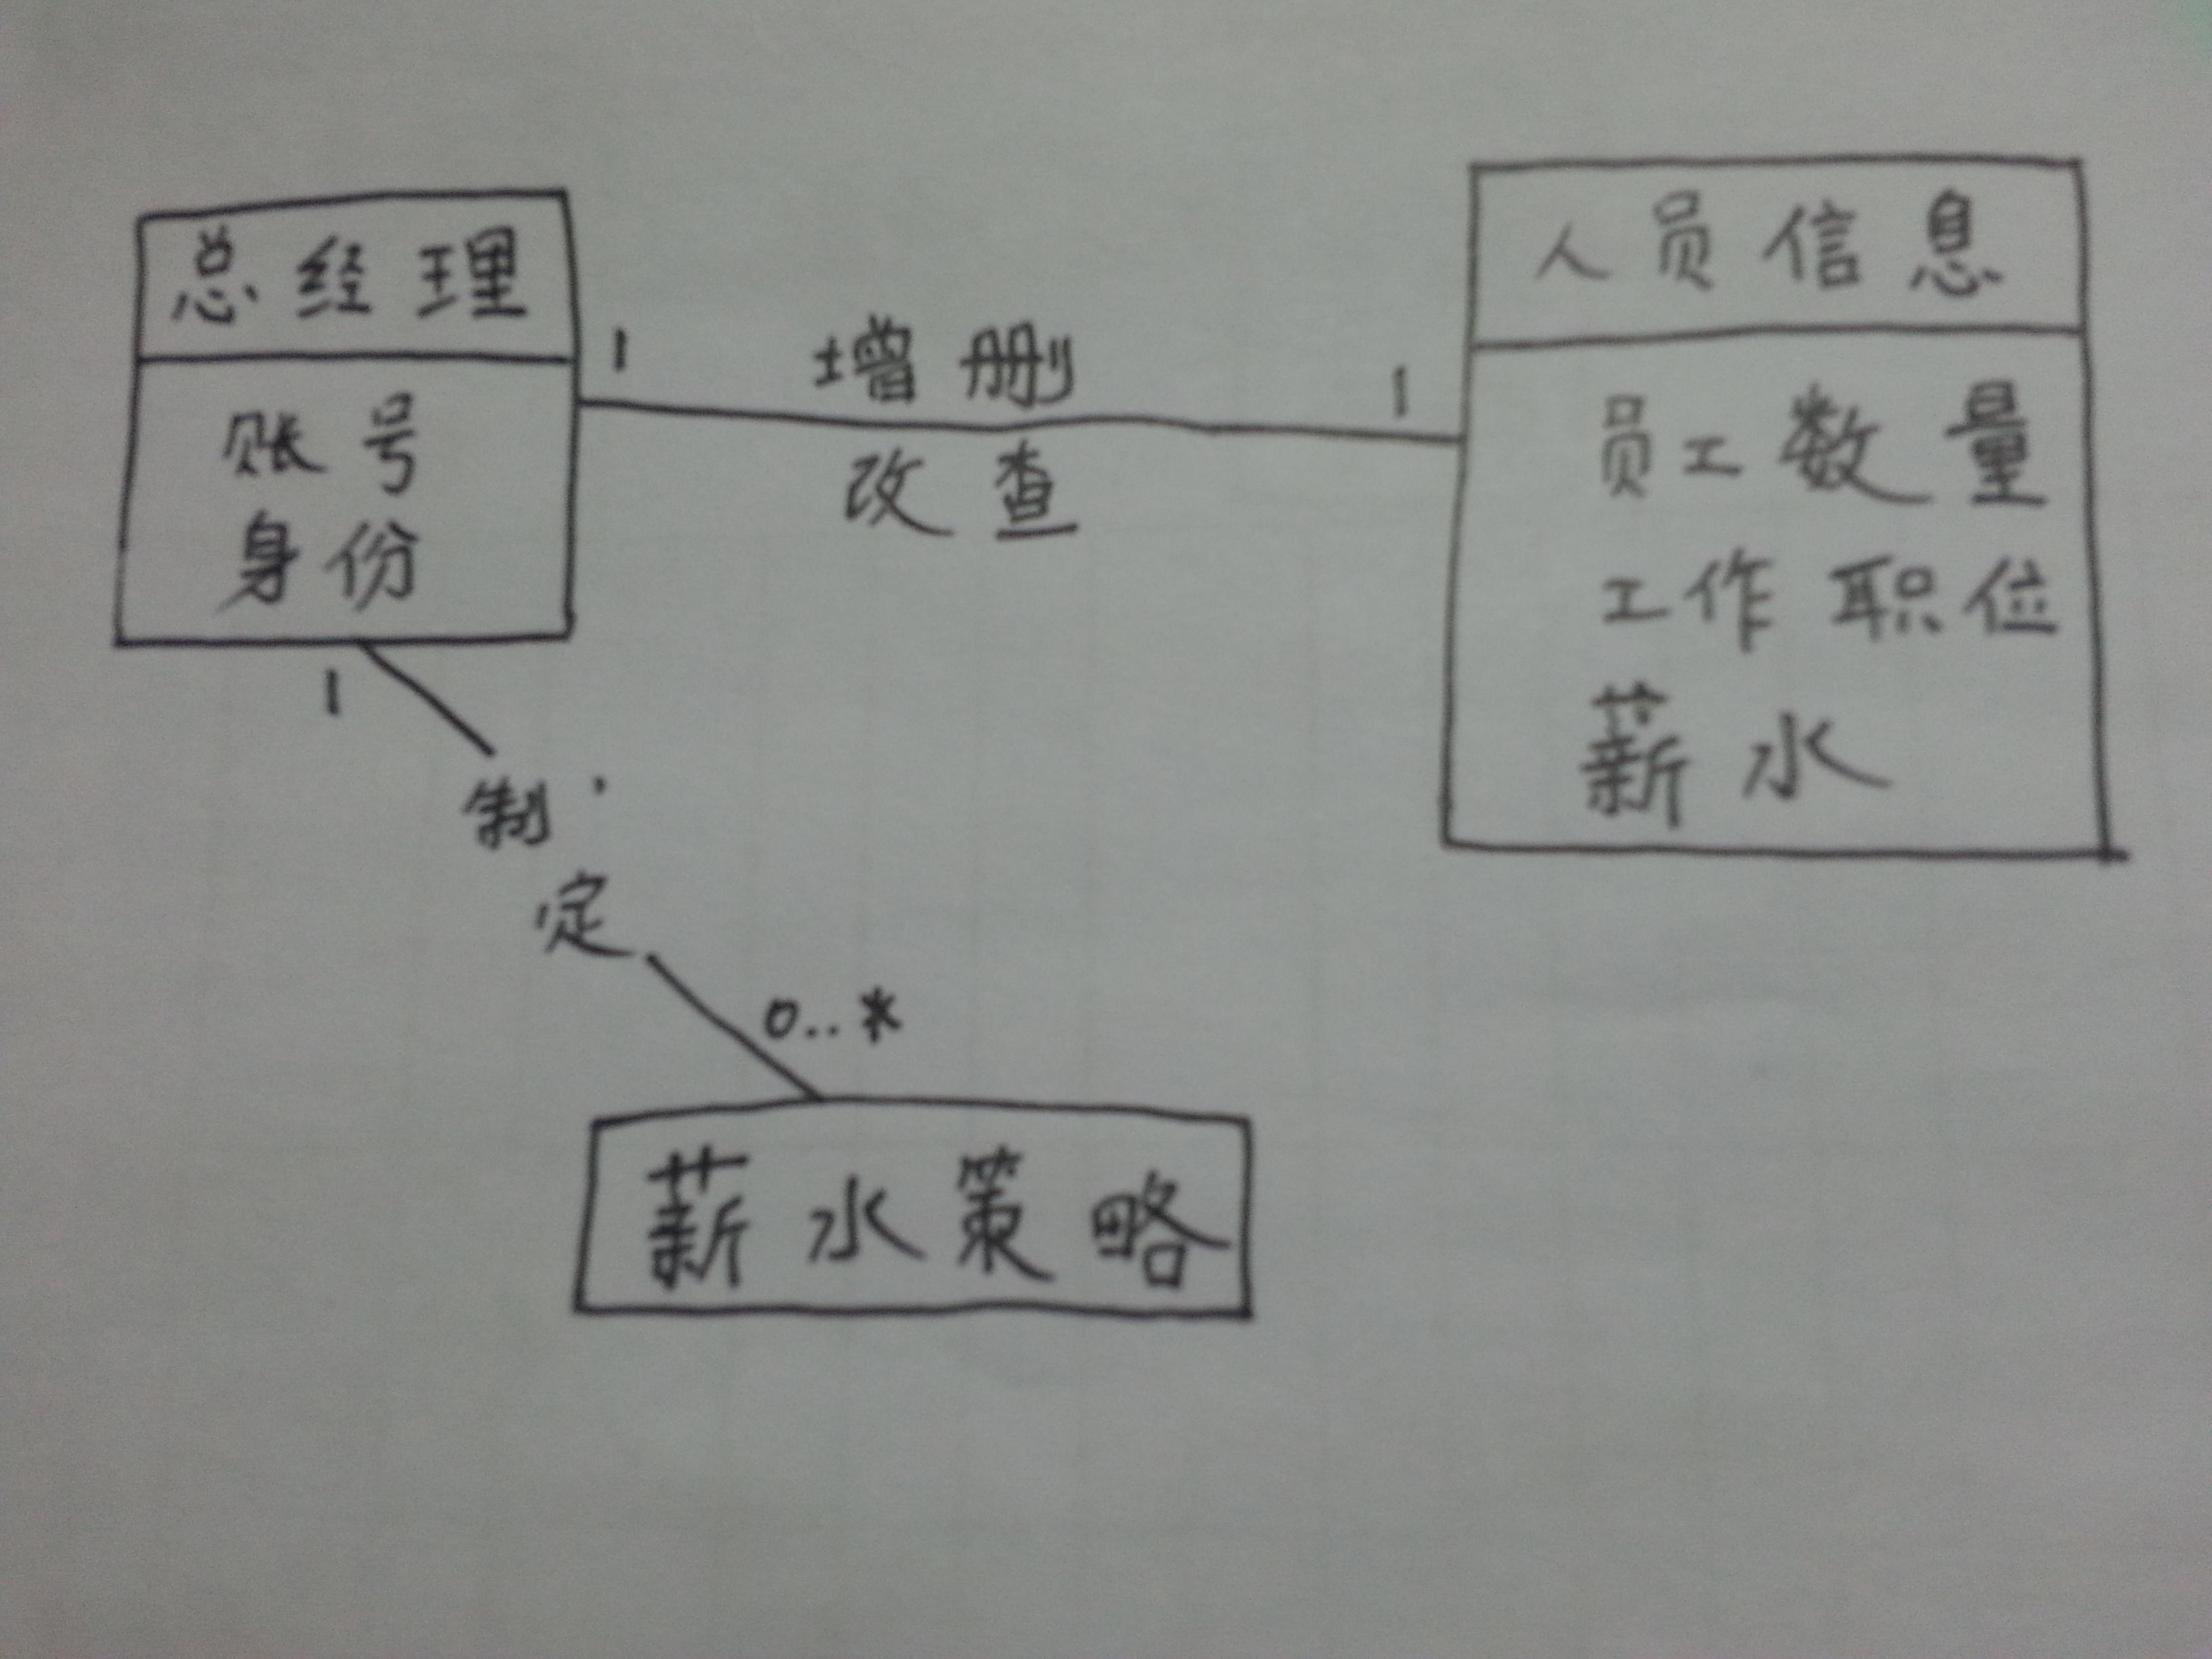 总经理
账号
身份
1
增删
改查
1
人员信息
员工数量
工作职位
薪水
1
制
定
0..*
薪水策略